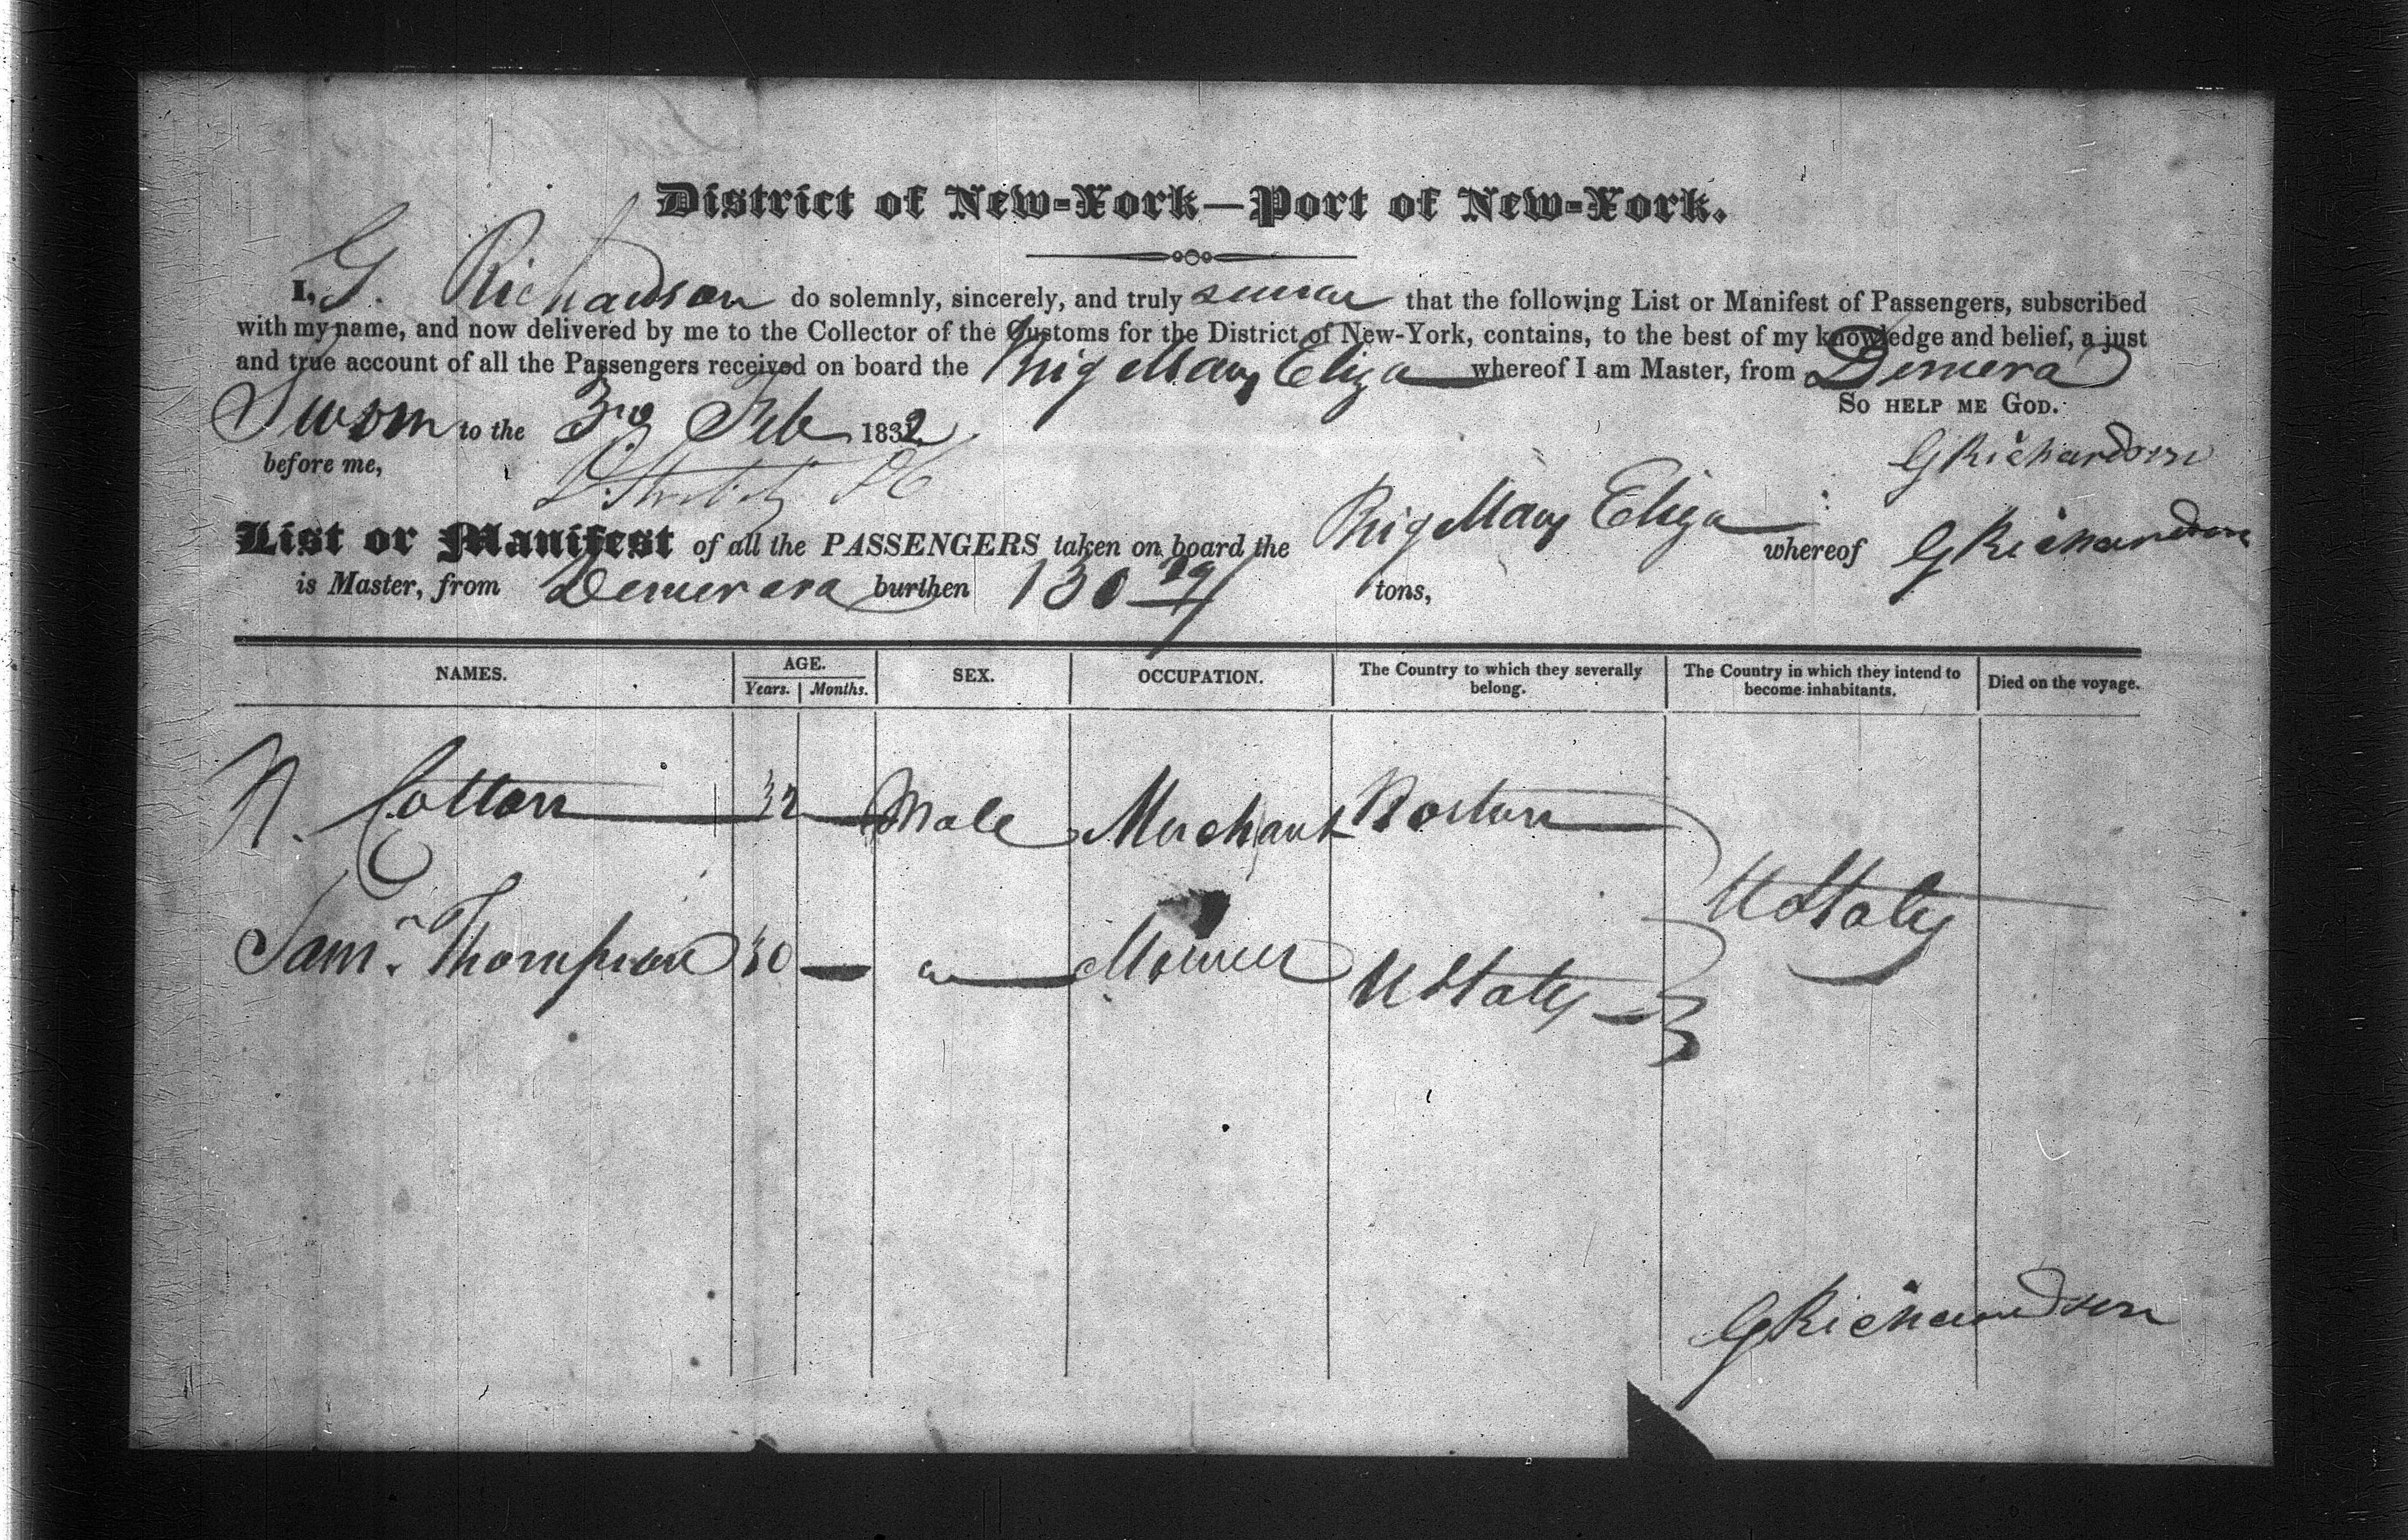 District of New-York—Port of New-York.
I, G. Richardson do solemnly, sincerely, and truly swear that the following List or Manifest of Passengers, subscribed
with my name, and now delivered by me to the Collector of the Customs for the District of New-York, contains, to the best of my knowledge and belief, a just
and true account of all the Passengers received on board the Brig Mary Eliza whereof I am Master, from Demera
So help me God.
Sworn to the 3rd Feb 1832
before me,
G Richardson
List or Manifest of all the PASSENGERS taken on board the Brig Mary Eliza whereof G Richardson
is Master, from Demerara burthen 130 tons,
NAMES. AGE. Years. Months. SEX. OCCUPATION. The Country to which they severally belong. The Country in which they intend to become inhabitants. Died on the voyage.
N. Cotton 32 — Male Merchant Boston
U States
Sam. Thompson 30 — Mariner U States
G Richardson